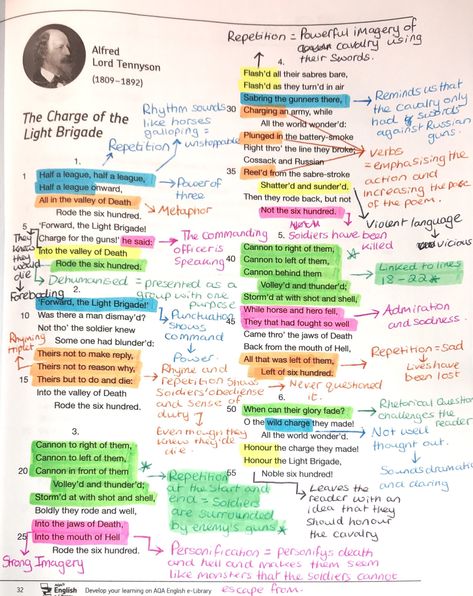 Alfred
Lord Tennyson
(1809–1892)
The Charge of the
Light Brigade
Rhythm sounds
like horses
galloping =
unstoppable
Repetition
1.
1 Half a league, half a league,
Half a league onward,
All in the valley of Death
Rode the six hundred.
Power of
three
Metaphor
5 'Forward, the Light Brigade!
Charge for the guns!' he said:
Into the valley of Death
Rode the six hundred.
They
knew
they
would
die
The commanding
officer is
speaking
Dehumanised = presented as a
group with one
purpose
Foreboding
2.
'Forward, the Light Brigade!'
10 Was there a man dismay'd?
Not tho' the soldier knew
Some one had blunder'd:
Theirs not to make reply,
Theirs not to reason why,
15 Theirs but to do and die:
Into the valley of Death
Rode the six hundred.
Punctuation
shows
command
Power.
Rhyming
triplet
Rhyme and
repetition shows
Soldiers' obedience
and sense of
duty
Never questioned
it.
Even though they
knew they'd
die.
3.
Cannon to right of them,
Cannon to left of them,
20 Cannon in front of them
Volley'd and thunder'd;
Storm'd at with shot and shell,
Boldly they rode and well,
Into the jaws of Death,
25 Into the mouth of Hell
Rode the six hundred.
Repetition
at the Start and
end = Soldiers
are surrounded
by enemy's guns
Strong Imagery
Personification = personifys death
and hell and makes them seem
like monsters that the soldiers cannot
escape from.
Repetition = Powerful imagery of
cavalry using
their Swords.
4.
Flash'd all their sabres bare,
Flash'd as they turn'd in air
Sabring the gunners there,
30 Charging an army, while
All the world wonder'd:
Plunged in the battery-smoke
Right thro' the line they broke;
Cossack and Russian
35 Reel'd from the sabre-stroke
Shatter'd and sunder'd.
Then they rode back, but not
Not the six hundred.
Reminds us that
the cavalry only
had swords
against Russian
guns.
Verbs
= emphasising the
action and
increasing the pace
of the poem.
Violent language
vicious
5. Soldiers have been
killed
Cannon to right of them,
40 Cannon to left of them,
Cannon behind them
Volley'd and thunder'd;
Storm'd at with shot and shell,
While horse and hero fell,
45 They that had fought so well
Came thro' the jaws of Death
Back from the mouth of Hell,
All that was left of them,
Left of six hundred.
Linked to lines
18-22
Admiration
and sadness.
Repetition = Sad
Lives have
been lost
6.
50 When can their glory fade?
O the wild charge they made!
All the world wonder'd.
Honour the charge they made!
Honour the Light Brigade,
55 Noble six hundred!
Rhetorical Question
challenges the
reader
Not well
thought out.
Sounds dramatic
and daring
Leaves the
reader with an
idea that they
should honour
the cavalry
32 English Develop your learning on AQA English e-Library